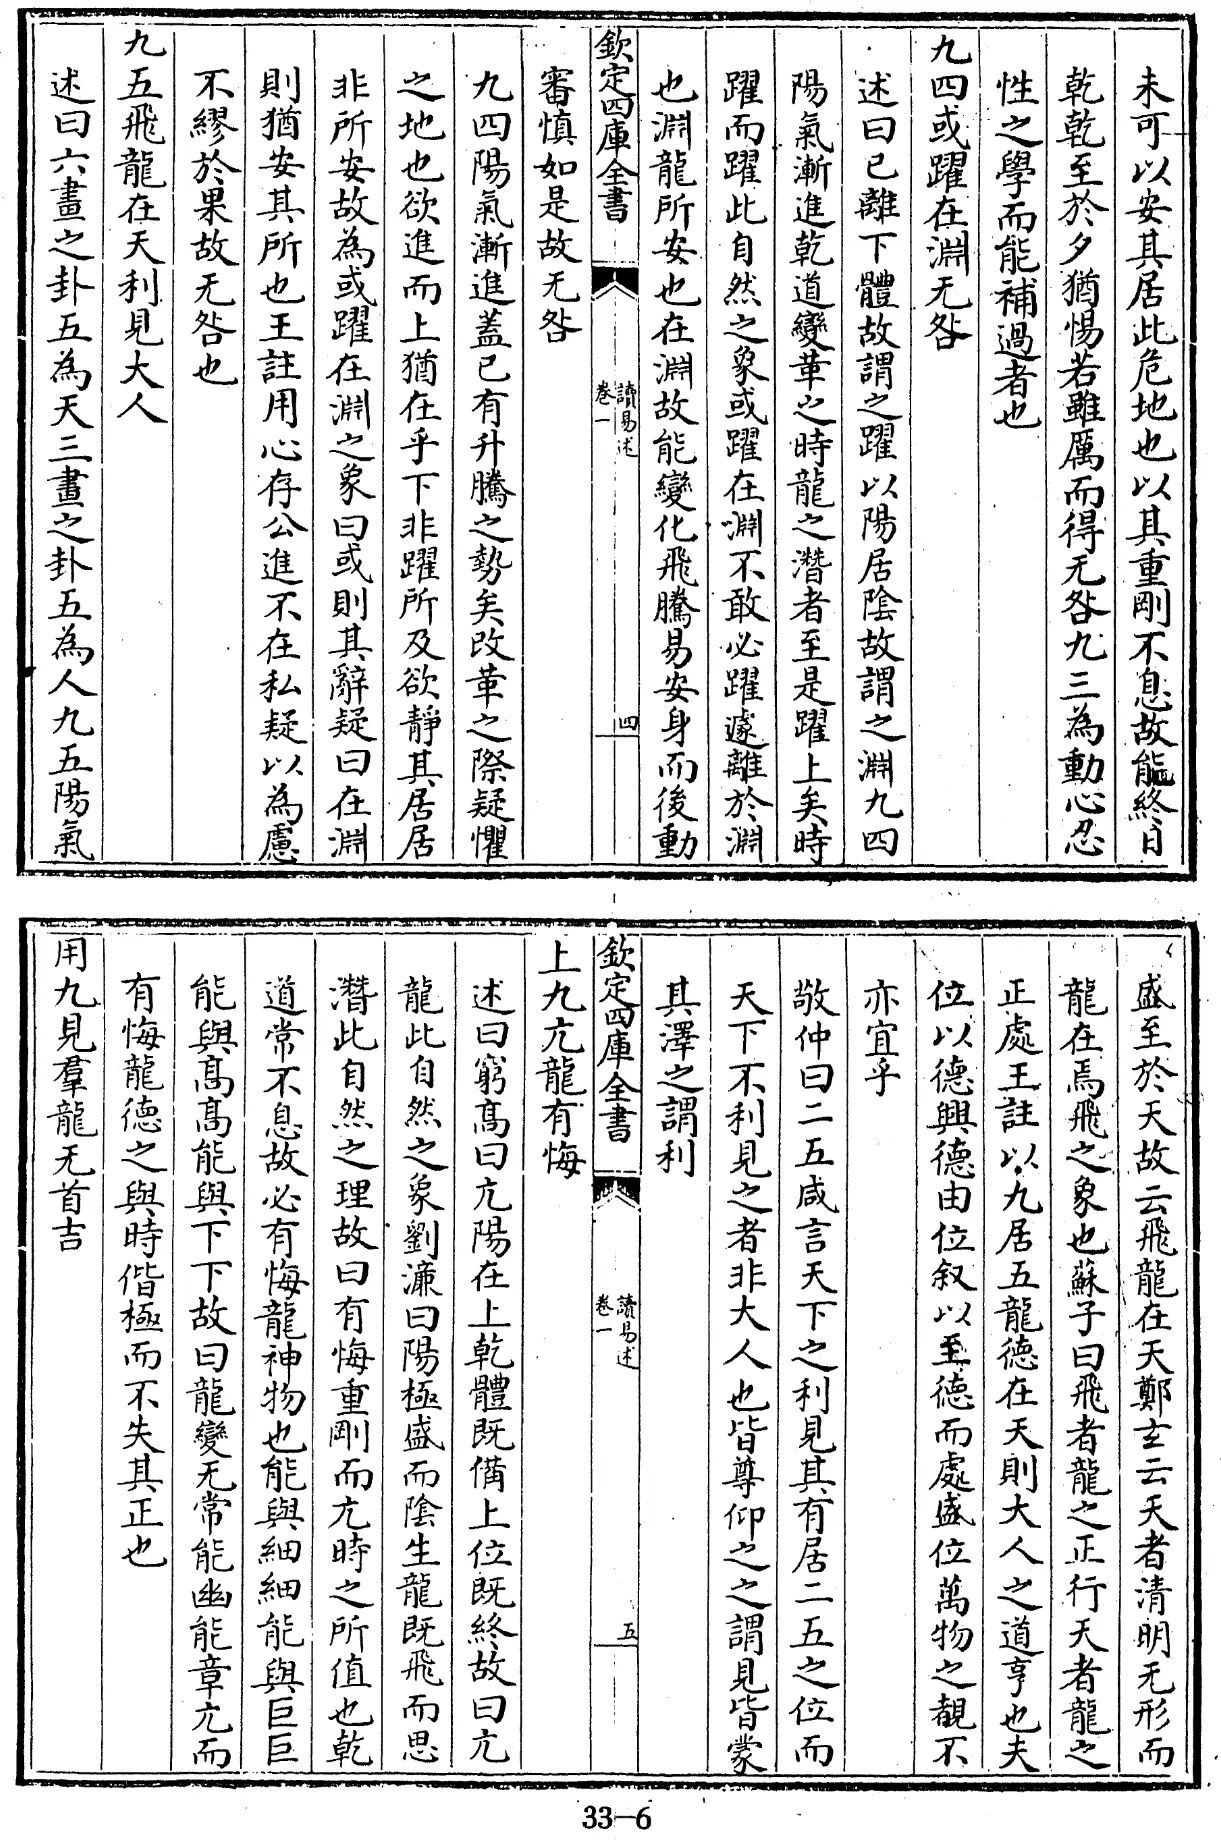 未可以安其居此危地也以其重剛不息故能終日
乾乾至於夕猶惕若雖厲而得无咎九三為動心忍
性之學而能補過者也
九四或躍在淵无咎
述曰已離下體故謂之躍以陽居陰故謂之淵九四
陽氣漸進乾道變革之時龍之潛者至是躍上矣時
躍而躍此自然之象或躍在淵不敢必躍遽離於淵
也淵龍所安也在淵故能變化飛騰易安身而後動
欽定四庫全書
讀易述
卷一
四
審慎如是故无咎
九四陽氣漸進蓋已有升騰之勢矣改革之際疑懼
之地也欲進而上猶在乎下非躍所及欲靜其居居
非所安故為或躍在淵之象曰或則其辭疑曰在淵
則猶安其所也王註用心存公進不在私疑以為慮
不繆於果故无咎也
九五飛龍在天利見大人
述曰六畫之卦五為天三畫之卦五為人九五陽氣
盛至於天故云飛龍在天鄭玄云天者清明无形而
龍在焉飛之象也蘇子曰飛者龍之正行天者龍之
正處王註以九居五龍德在天則大人之道亨也夫
位以德興德由位叙以至德而處盛位萬物之覩不
亦宜乎
敬仲曰二五咸言天下之利見其有居二五之位而
天下不利見之者非大人也皆尊仰之之謂見皆蒙
其澤之謂利
欽定四庫全書
讀易述
卷一
五
上九亢龍有悔
述曰窮高曰亢陽在上乾體既備上位既終故曰亢
龍此自然之象劉濂曰陽極盛而陰生龍既飛而思
潛此自然之理故曰有悔重剛而亢時之所值也乾
道常不息故必有悔龍神物也能與細細能與巨巨
能與高高能與下下故曰龍變无常能幽能章亢而
有悔龍德之與時偕極而不失其正也
用九見羣龍无首吉
33-6